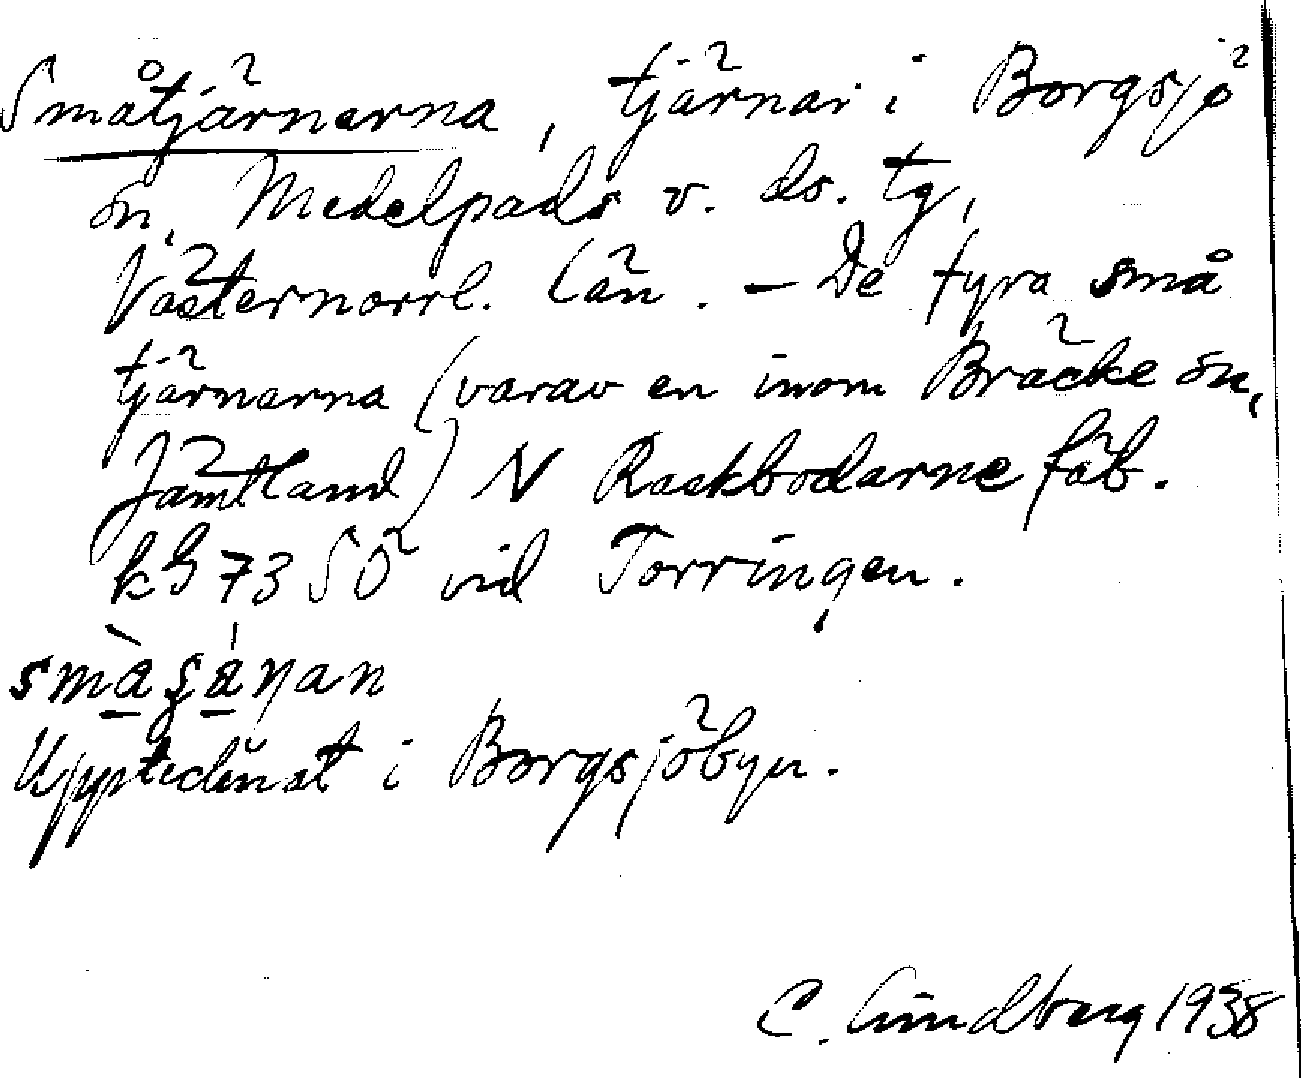 Småtjärnarna, tjärnar i Borgsjö
sn, Medelpads v. ds. tg,
Västernorrl. län. – De fyra små
tjärnarna (varav en inom Bräcke sn,
Jämtland) N Raskbodarne fäb.
kb 73 SÖ vid Torringen.
Upptecknat i Borgsjöbyn.
C. Lindberg 1938